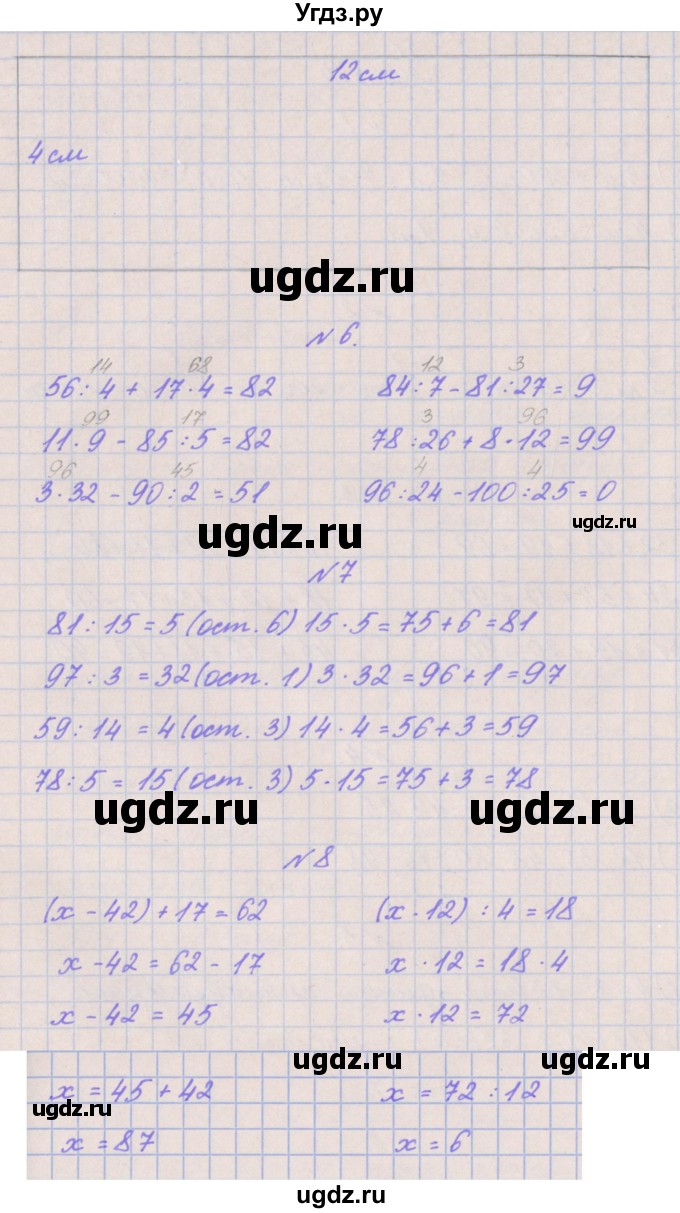 Угдз.ру
12 см
4 см
ugdz.ru
№ 6.
14 68 12 3
56 : 4 + 17 · 4 = 82 84 : 7 - 81 : 27 = 9
99 17 3 96
11 · 9 - 85 : 5 = 82 78 : 26 + 8 · 12 = 99
96 45 4 4
3 · 32 - 90 : 2 = 51 96 : 24 - 100 : 25 = 0
ugdz.ru ugdz.ru
№ 7
81 : 15 = 5 (ост. 6) 15 · 5 = 75 + 6 = 81
97 : 3 = 32 (ост. 1) 3 · 32 = 96 + 1 = 97
59 : 14 = 4 (ост. 3) 14 · 4 = 56 + 3 = 59
78 : 5 = 15 (ост. 3) 5 · 15 = 75 + 3 = 78
ugdz.ru ugdz.ru
№ 8
(х - 42) + 17 = 62 (х · 12) : 4 = 18
х - 42 = 62 - 17 х · 12 = 18 · 4
х - 42 = 45 х · 12 = 72
ugdz.ru ugdz.ru
х = 45 + 42 х = 72 : 12
ugdz.ru ugdz.ru
х = 87 х = 6
ugdz.ru